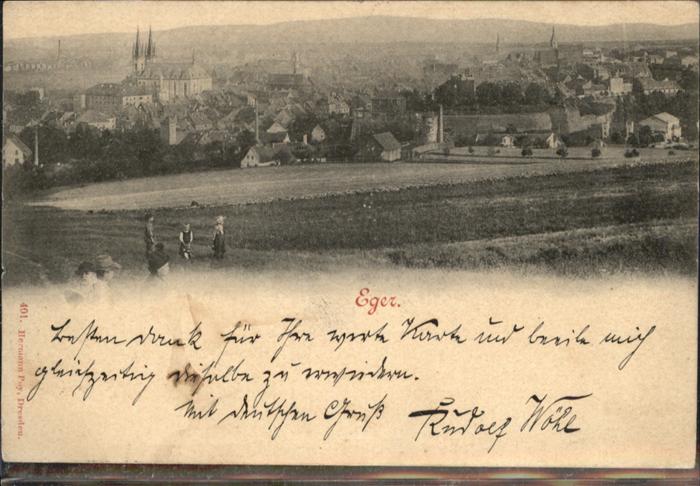 Eger.
Besten Dank für Ihre werte Karte und beeile mich
gleichzeitig dieselbe zu erwiedern.
Mit deutschen Gruß Rudolf Wöhl
401. Hermann Poy, Dresden.